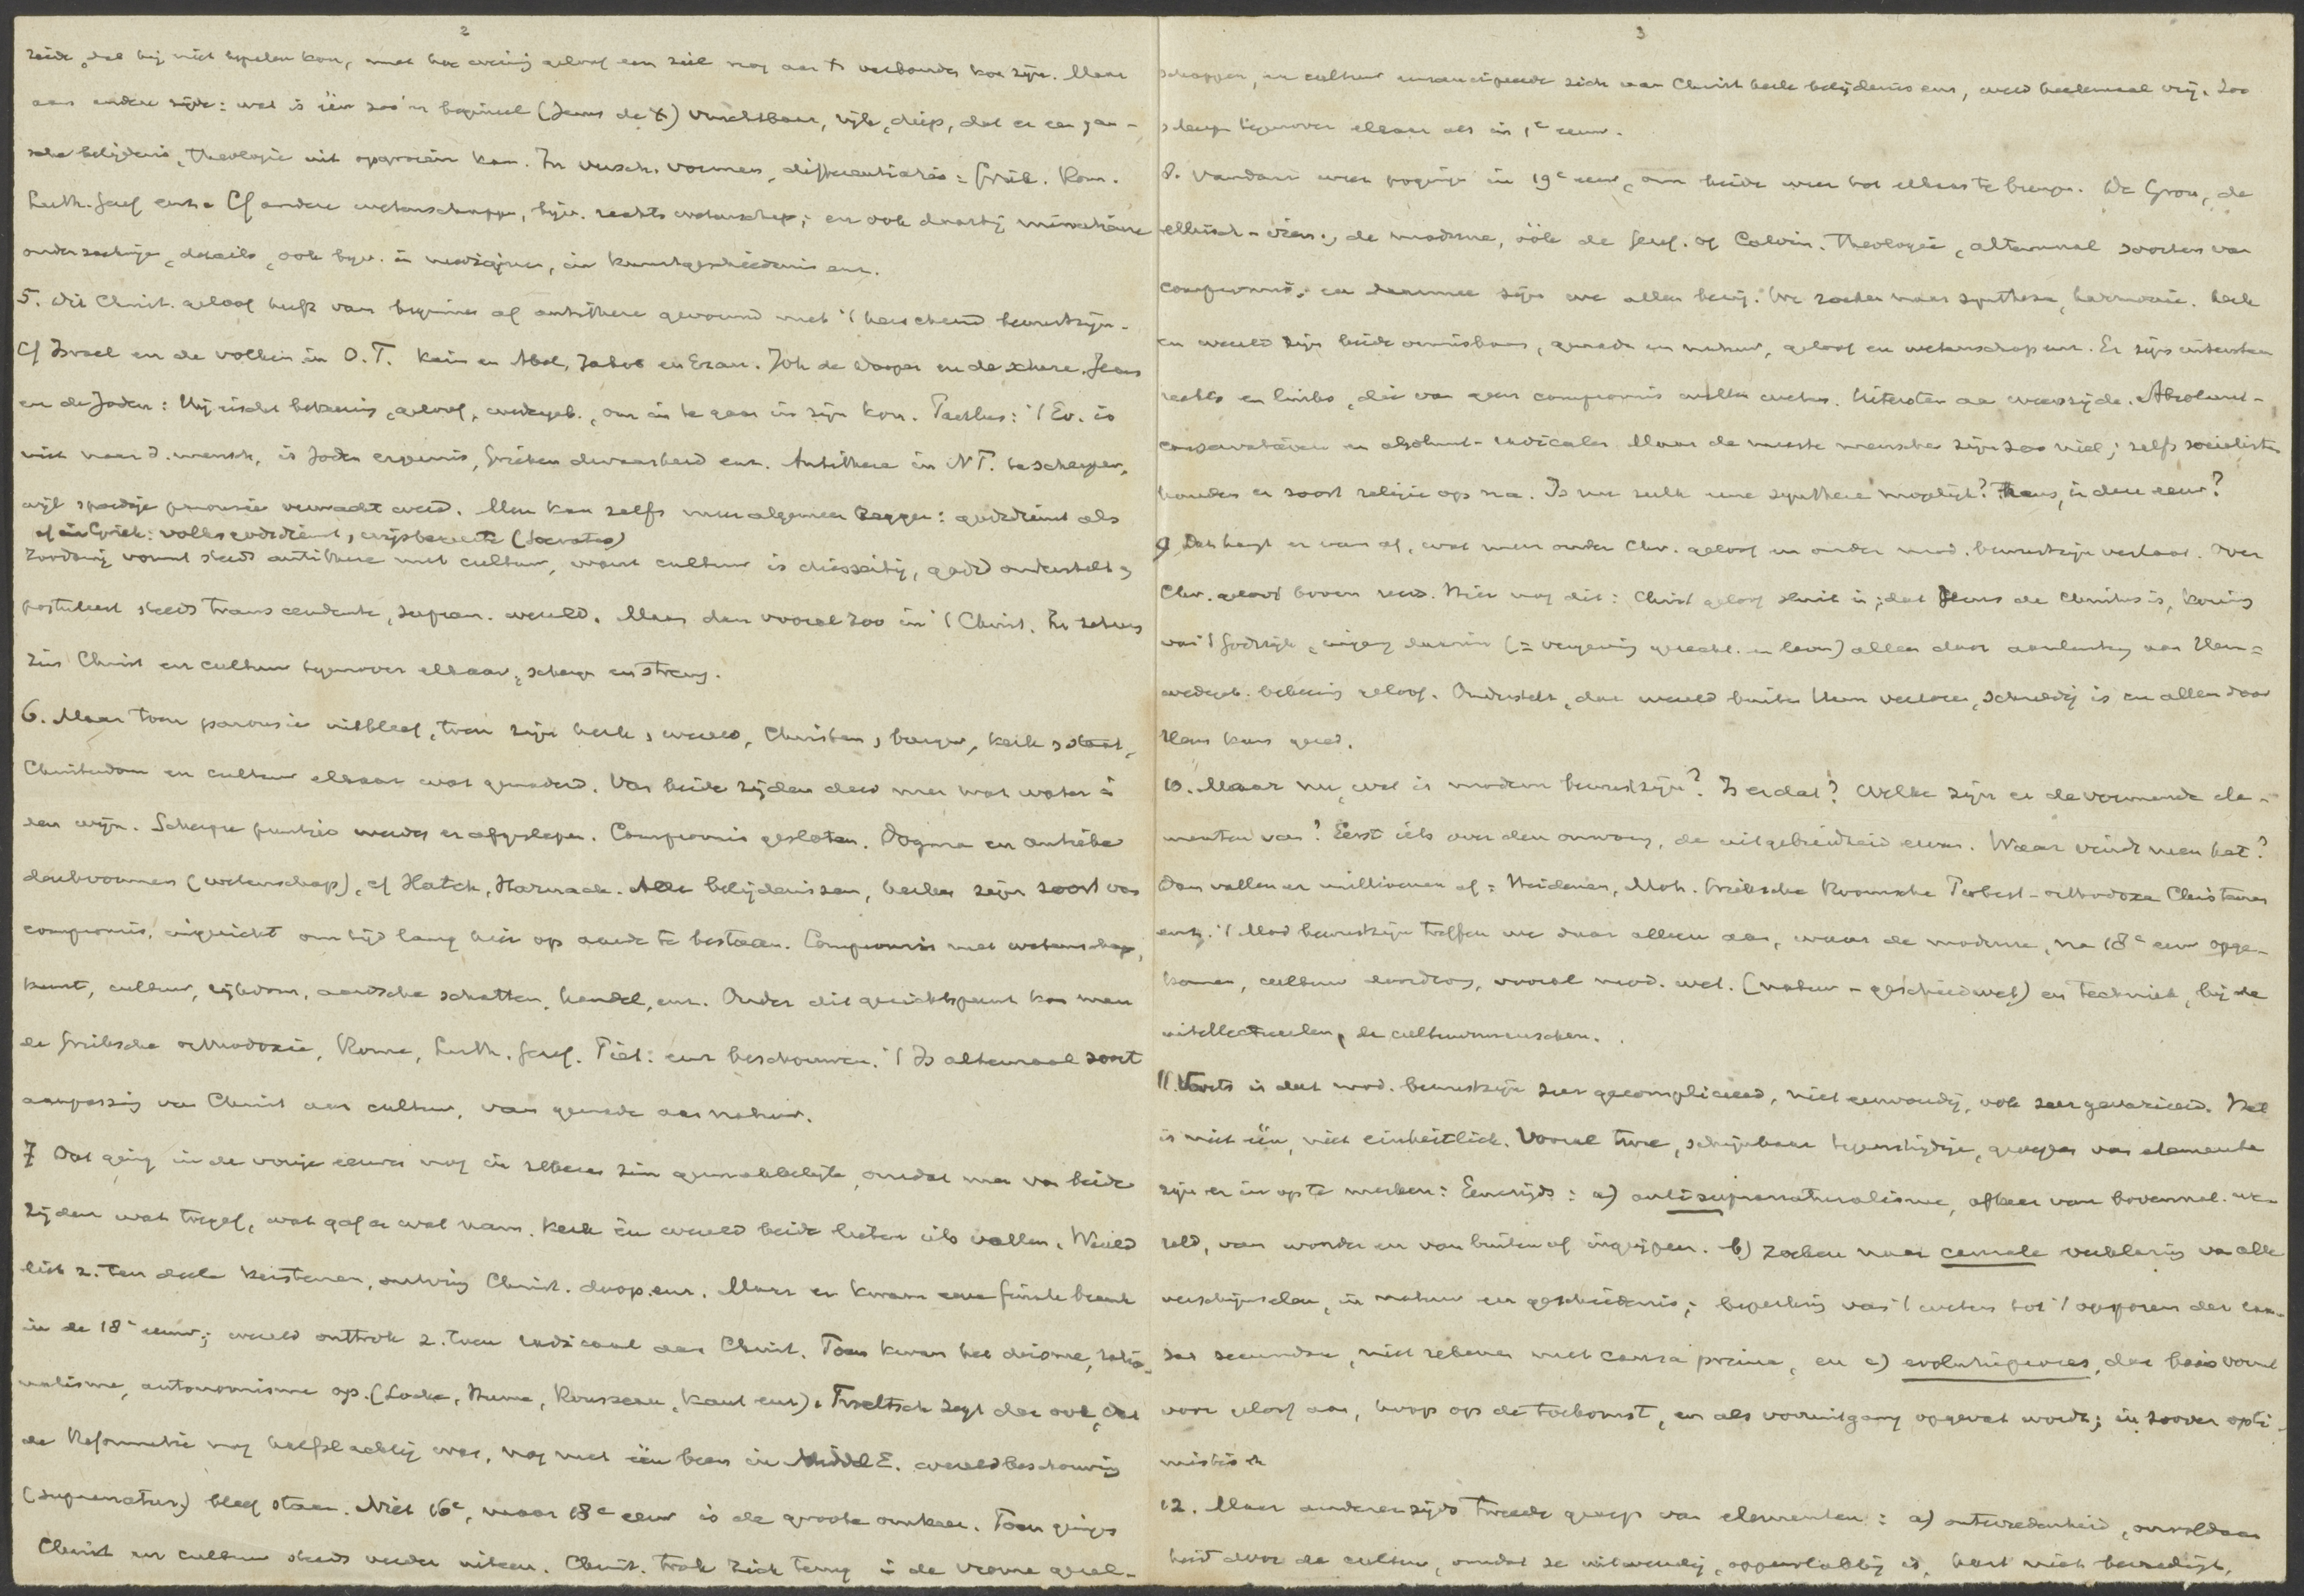 2
zeide, dat hij niet bepalen kon, met hoe weinig geloof een ziel nog aan X verbonden kon zijn. Maar
aan andere zijde: wat is één zoo'n beginsel (Jezus de X) vruchtbaar, rijk, diep, dat er een gan-
sche belijdenis, theologie uit opgroeien kan. In versch. vormen, differentiatie: Griek. Rom.
Luth. Geref enz. Cf andere wetenschappen, bijv. rechtswetenschap; en ook daarbij minutieuse
onderzoekingen, details, ook bijv. in medicijnen, in kunstgeschiedenis enz.
5. Dit Christ. geloof heeft van beginne af antithese gevormd met 't heerschend bewustzijn.
Cf Israel en de volken in O.T. Kain en Abel, Jakob en Ezau. Joh de Dooper en de schare. Jezus
en de Joden: Hij eischt bekeering, geloof, wedergeb., om in te gaan in zijn kon. Paulus: 't Ev. is
niet naar d. mensch, is Joden ergernis, Grieken dwaasheid enz. Antithese in N.T. te scherper,
wijl spoedige parousie verwacht werd. Men kan zelfs meer algemeen zeggen: godsdienst als
cf in Griek: volksgodsdienst, wijsbegeerte (Socrates)
zoodanig vormt steeds antithese met cultuur, want cultuur is diesseitig, godsd onderstelt,
postuleert steeds transcendente, supran. wereld. Maar dan vooral zoo in 't Christ. In zekere
zin Christ en cultuur tegenover elkaar, scherp en streng.
6. Maar toen parousie uitbleef, toen zijn kerk, wereld, Christen, burger, kerk, staat,
Christendom en cultuur elkaar wat genaderd. Van beide zijden deed men wat water in
den wijn. Scherpe puntjes werden er afgeslepen. Compromis gesloten. Dogma en antieke
denkvormen (wetenschap), cf Hatch, Harnack. Alle belijdenissen, kerken zijn soort van
compromis, ingericht om tijd lang hier op aarde te bestaan. Compromis met wetenschap,
kunst, cultuur, rijkdom, aardsche schatten, handel, enz. Onder dit gezichtspunt kan men
de Grieksche orthodoxie, Rome, Luth. Geref. Piët. enz beschouwen. 't Is altemaal soort
aanpassing van Christ aan cultuur, van genade aan natuur.
7 Dat ging in de vorige eeuwen nog in zekeren zin gemakkelijk, omdat men van beide
zijden wat toegaf, wat gaf en wat nam. Kerk en wereld beide lieten iets vallen. Wereld
liet z. ten deele kerstenen, ontving Christ. doop enz. Maar er kwam eene finale breuk
in de 18e eeuw; wereld onttrok z. toen radicaal aan Christ. Toen kwam het deisme, ratio-
nalisme, autonomisme op. (Locke, Hume, Rousseau, Kant enz). Troeltsch zegt dan ook, dat
de Reformatie nog halfslachtig was, nog met één been in Middel E. wereldbeschouwing
(supranatur.) bleef staan. Niet 16e, maar 18e eeuw is de groote ommekeer. Toen gingen
Christ en cultuur steeds verder uiteen. Christ. trok zich terug in de vrome gezel-
3
schappen, en cultuur emancipeerde zich van Christ kerk belijdenis enz, werd heelemaal vrij. Zoo
scherp tegenover elkaar als in 1e eeuw.
8. Vandaar weer poging in 19e eeuw, om beide weer tot elkaar te brengen. De Gron, de
ethisch-iren., de moderne, óók de Geref. of Calvin. theologie, altemaal soorten van
compromis, en daarmee zijn we allen bezig. We zoeken naar synthese, harmonie. Kerk
en wereld zijn beide onmisbaar, genade en natuur, geloof en wetenschap enz. Er zijn uitersten
rechts en links, die van geen compromis willen weten. Uitersten aan weerszijde. Absoluut-
conservatieven en absoluut-radicalen. Maar de meeste menschen zijn zoo niet; zelfs socialisten
houden er soort religie op na. Is nu zulk eene synthese mogelijk? Thans, in deze eeuw?
9 Dat hangt er van af, wat men onder Chr. geloof en onder mod. bewustzijn verstaat. Over
Chr. geloof boven reeds. Hier nog dit: Christ geloof sluit in, dat Jezus de Christus is, Koning
van 't Godsrijk, ingang daarin (= vergeving gerecht. en leven) alleen door aansluiting aan Hem =
wedergeb. bekeering geloof. Onderstelt, dat wereld buiten Hem verloren, schuldig is en alleen door
Hem kan gered.
10. Maar nu, wat is modern bewustzijn? Is er dat? Welke zijn er de vormende ele-
menten van? Eerst iets over den omvang, de uitgebreidheid ervan. Waar vindt men het?
Dan vallen er millioenen af: Heidenen, Moh. Grieksche Roomsche Protest-orthodoxe Christenen
enz. 't Mod bewustzijn treffen we daar alleen aan, waar de moderne, na 18e eeuw opge-
komen, cultuur doordrong, vooral mod. wet. (natuur- geschiedwet) en techniek, bij de
intellectueelen, de cultuurmenschen.
11. Voorts is dat mod. bewustzijn zeer gecompliceerd, niet eenvoudig, ook zeer gevarieerd. Het
is niet één, niet einheitlich. Vooral twee, schijnbaar tegenstrijdige, groepen van elementen
zijn er in op te merken: Eenerzijds: a) antisupranaturalisme, afkeer van bovennat. we-
reld, van wonder en van buiten af ingrijpen. b) zoeken naar causale verklaring van alle
verschijnselen, in natuur en geschiedenis; beperking van 't weten tot 't opsporen der cau-
sae secundae, niet rekenen met causa prima, en c) evolutieproces, dat basis vormt
voor geloof aan, hoop op de toekomst, en als vooruitgang opgevat wordt; in zoover opti-
mistisch
12. Maar anderzijds tweede groep van elementen: a) ontevredenheid, onvoldaan
heid door de cultuur, omdat ze uitwendig, oppervlakkig is, hart niet bevredigt,